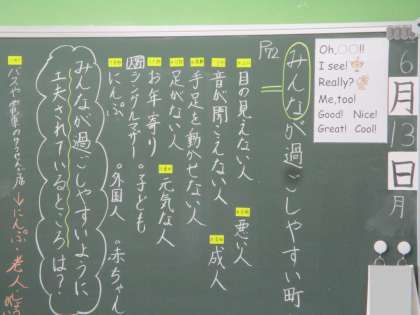 6
月
13
日
月
Oh,○○!!
I see!
Really?
Me,too!
Good! Nice!
Great! Cool!
P72
みんなが過ごしやすい町
目の見えない人 悪い人
音が聞こえない人 成人
手足を動かせない人
足がない人 元気な人
お年寄り 子ども
シングルマザー
にんぷ 外国人 赤ちゃん
みんなが過ごしやすいように
工夫されているところは?
バスや電車の
にんぷ 老人